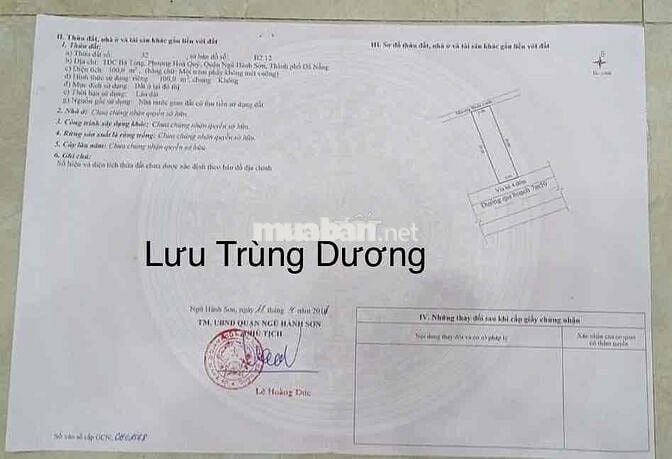 II. Thửa đất, nhà ở và tài sản khác gắn liền với đất
1. Thửa đất:
a) Thửa đất số: 32 , tờ bản đồ số: B2.12
b) Địa chỉ: TDC Bá Tùng, Phường Hoà Quý, Quận Ngũ Hành Sơn, Thành phố Đà Nẵng
c) Diện tích: 100,0 m², (bằng chữ: Một trăm phẩy không mét vuông)
d) Hình thức sử dụng: riêng 100,0 m², chung Không
đ) Mục đích sử dụng: Đất ở tại đô thị
e) Thời hạn sử dụng: Lâu dài
g) Nguồn gốc sử dụng: Nhà nước giao đất có thu tiền sử dụng đất
2. Nhà ở: Chưa chứng nhận quyền sở hữu.
3. Công trình xây dựng khác: Chưa chứng nhận quyền sở hữu.
4. Rừng sản xuất là rừng trồng: Chưa chứng nhận quyền sở hữu.
5. Cây lâu năm: Chưa chứng nhận quyền sở hữu.
6. Ghi chú:
Số hiệu và diện tích thửa đất chưa được xác định theo bản đồ địa chính
III. Sơ đồ thửa đất, nhà ở và tài sản khác gắn liền với đất
Vỉa hè 4.00m
Đường qui hoạch 7m50
muaban.net
Lưu Trùng Dương
Ngũ Hành Sơn, ngày tháng năm
TM. UBND QUẬN NGŨ HÀNH SƠN
PHÓ CHỦ TỊCH
Lê Hoàng Đức
Số vào sổ cấp GCN:
IV. Những thay đổi sau khi cấp giấy chứng nhận
Nội dung thay đổi và cơ sở pháp lý
Xác nhận của cơ quan
có thẩm quyền